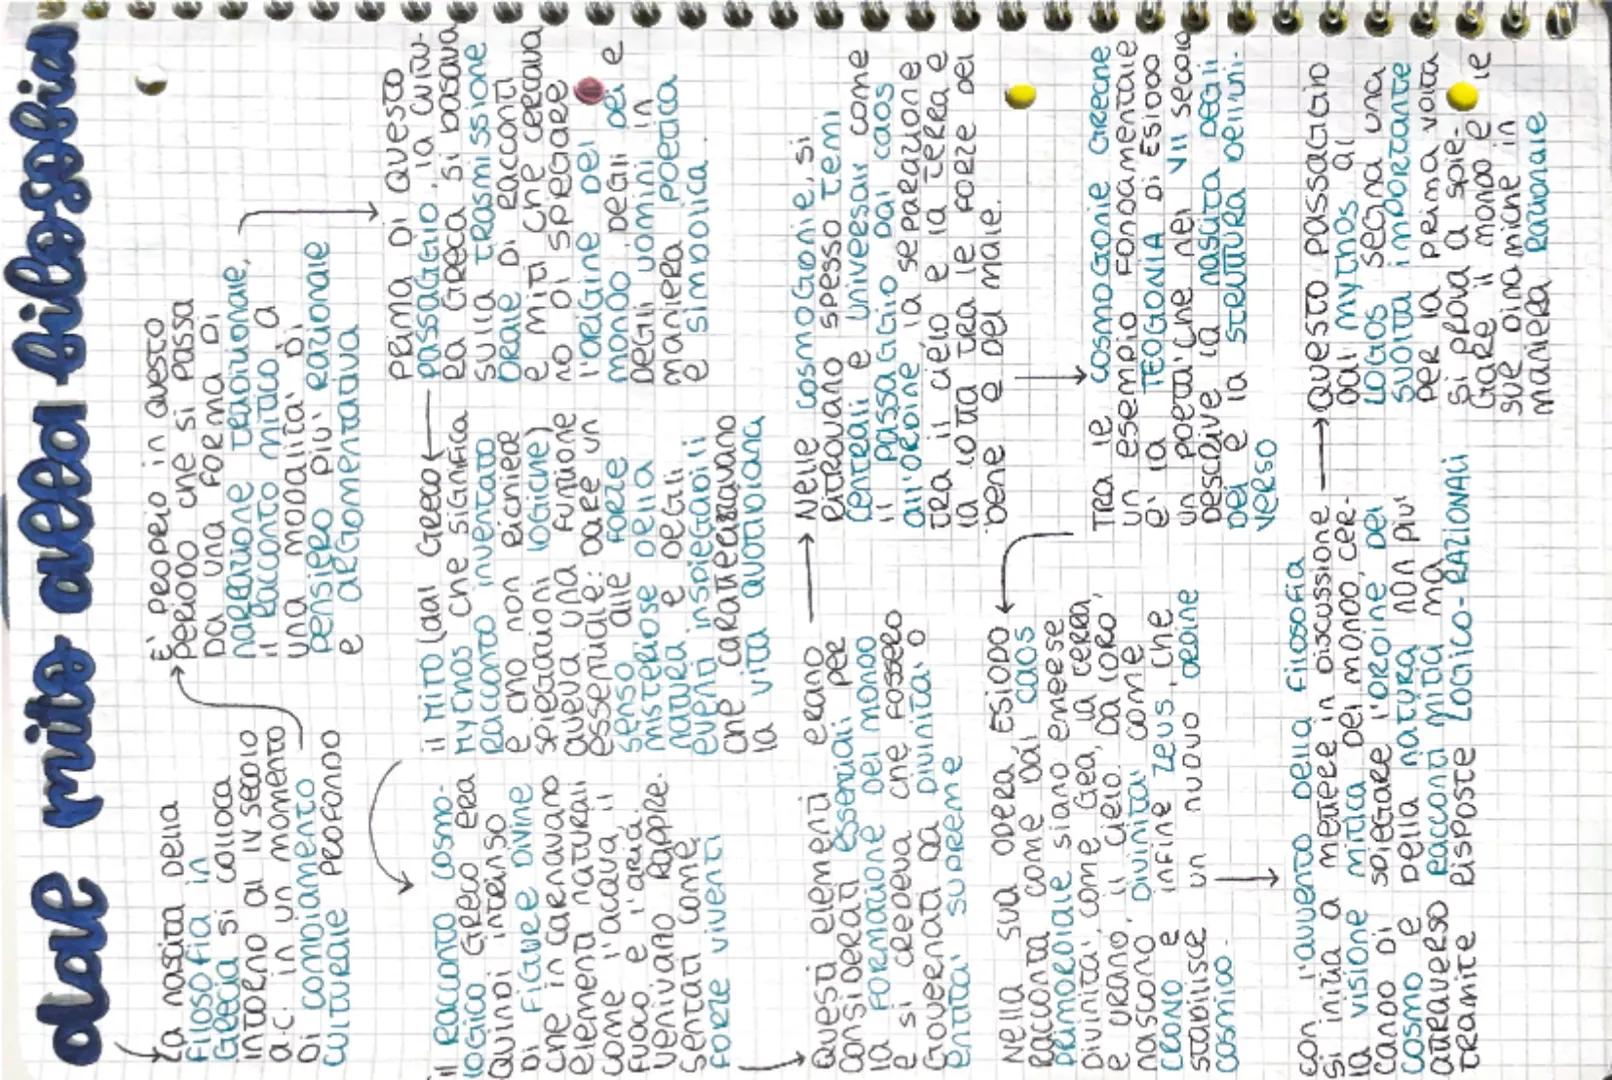 dal mito alla filosofia
La nascita della
filosofia in
Grecia si colloca
intorno al IV secolo
a.C. in un momento
di cambiamento
culturale profondo
È proprio in questo
periodo che si passa
da una forma di
narrazione tradizionale,
il racconto mitico a
una modalità di
pensiero più razionale
e argomentativa
prima di questo
passaggio, la cultu-
ra greca si basava
sulla trasmissione
orale di racconti
e miti che cercava
no di spiegare
l'origine del
mondo, degli dei e
degli uomini in
maniera poetica
e simbolica.
il mito (dal Greco
mythos che significa
racconto inventato
e che non richiede
spiegazioni logiche)
aveva una funzione
essenziale: dare un
senso alle forze
misteriose della
natura e degli
eventi inspiegabili
che caratterizzavano
la vita quotidiana
il racconto cosmo-
logico greco era
quindi intriso
di figure divine
che incarnavano
elementi naturali
come l'acqua il
fuoco e l'aria,
venivano rappre.
sentati come
forze viventi
Questi elementi erano
considerati essenziali per
la formazione del mondo
e si credeva che fossero
governati da divinità o
entità supreme
Nelle cosmogonie, si
ritrovano spesso temi
centrali e universali come
il passaggio dal caos
all'ordine la separazione
tra il cielo e la terra e
la lotta tra le forze del
bene e del male.
Tra le cosmogonie greche
un esempio fondamentale
e' la TEOGONIA di Esiodo
un poeta che nel VII secolo
descrive la nascita degli
dei e la struttura dell'uni-
verso
Nella sua opera, Esiodo
racconta come dal caos
primordiale siano emerse
divinità, come Gea, la terra,
e Urano, il cielo. Da loro,
nascono divinità come
Crono e infine Zeus, che
stabilisce un nuovo ordine
cosmico.
con l'avvento della filosofia
si inizia a mettere in discussione
la visione mitica del mondo, cer-
cando di spiegare l'ordine del
cosmo e della natura non più
attraverso racconti mitici ma
tramite risposte logico-RAZIONALI
Questo passaggio
dal mythos al
Logos segna una
svolta importante
per la prima volta
si prova a spie-
gare il mondo e le
sue dinamiche in
maniera razionale